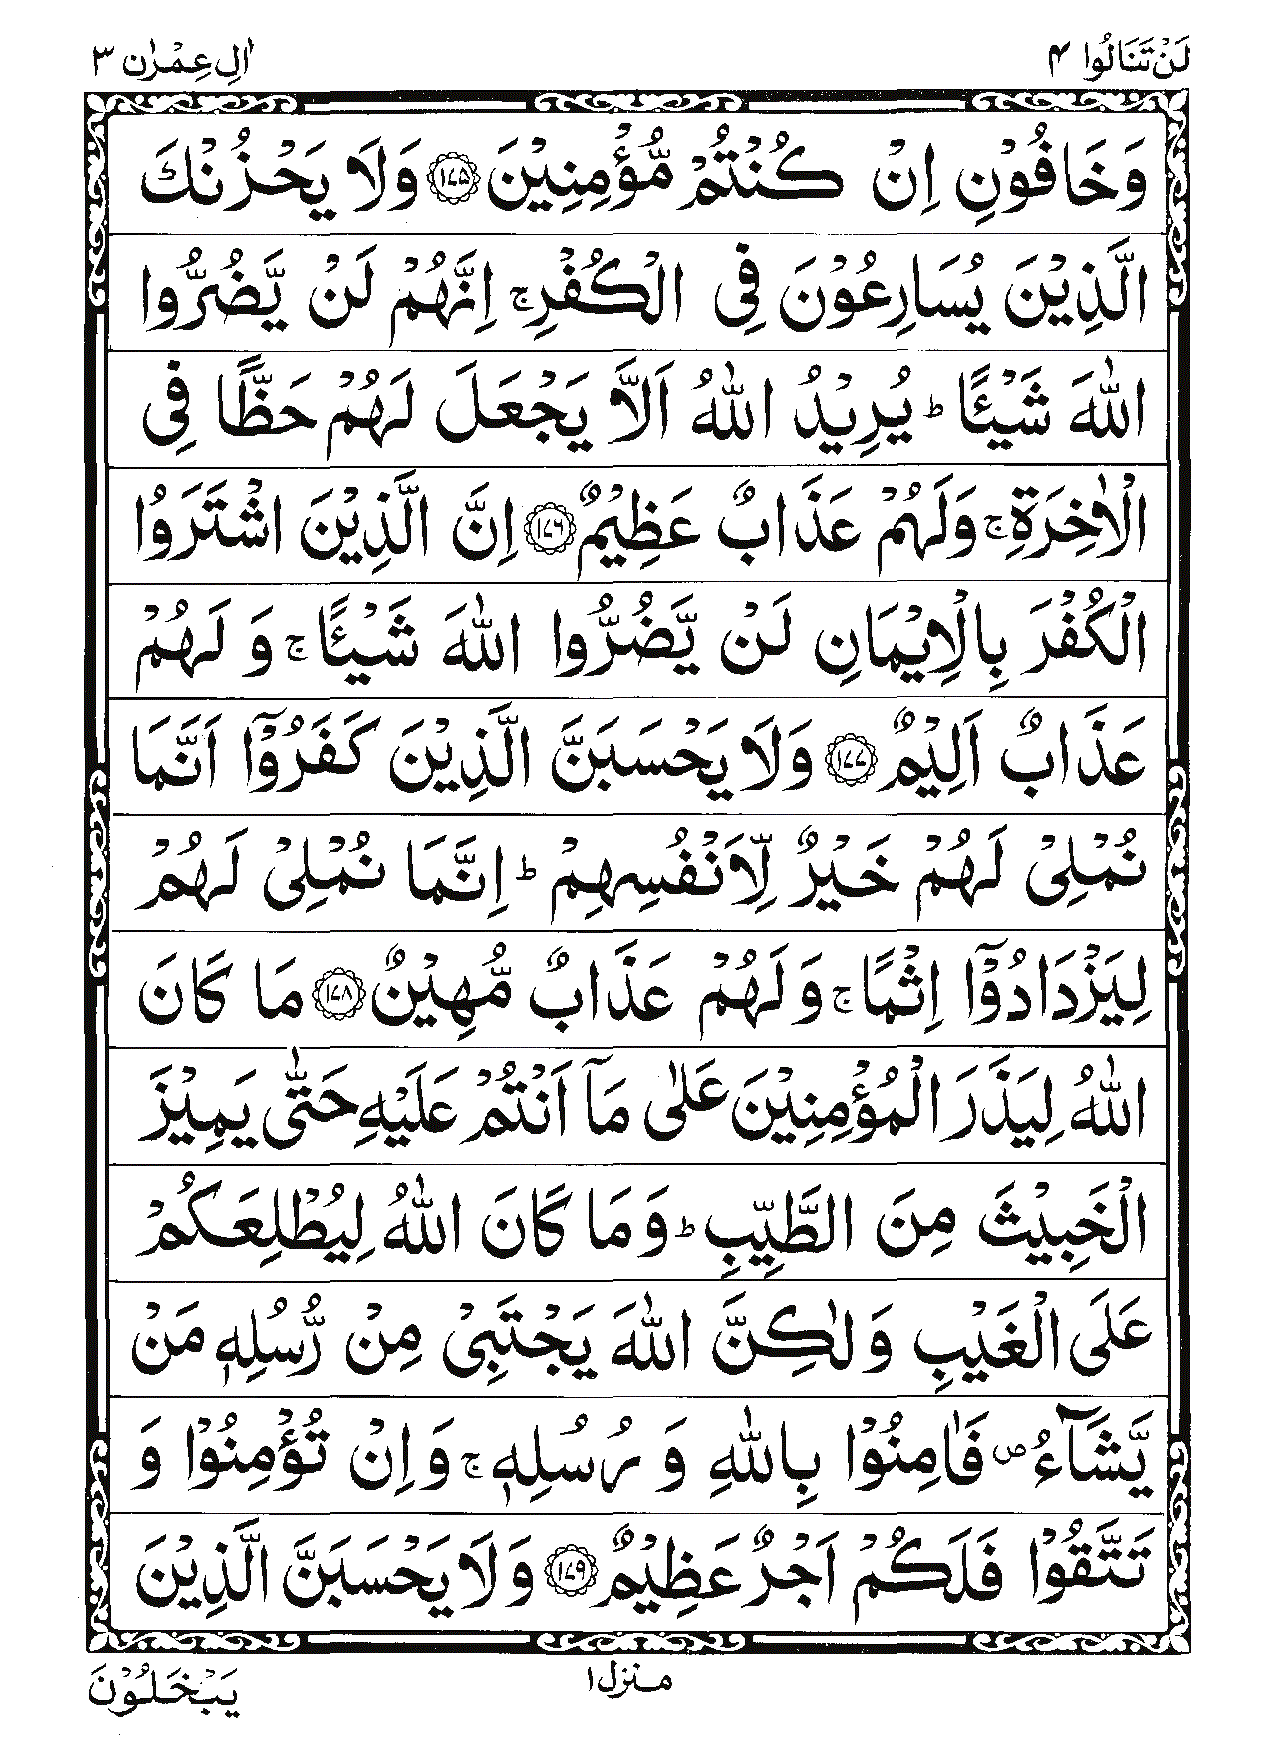 لَنْ تَنَالُوا ۴
اٰلِ عِمْرٰن ۳
وَخَافُوْنِ اِنْ كُنْتُمْ مُّؤْمِنِيْنَ ۝۱۷۵ وَلَا يَحْزُنْكَ
الَّذِيْنَ يُسَارِعُوْنَ فِى الْكُفْرِ ۚ اِنَّهُمْ لَنْ يَّضُرُّوا
اللّٰهَ شَيْـًٔا ؕ يُرِيْدُ اللّٰهُ اَلَّا يَجْعَلَ لَهُمْ حَظًّا فِى
الْاٰخِرَةِ ۚ وَلَهُمْ عَذَابٌ عَظِيْمٌ ۝۱۷۶ اِنَّ الَّذِيْنَ اشْتَرَوُا
الْكُفْرَ بِالْاِيْمَانِ لَنْ يَّضُرُّوا اللّٰهَ شَيْـًٔا ۚ وَ لَهُمْ
عَذَابٌ اَلِيْمٌ ۝۱۷۷ وَلَا يَحْسَبَنَّ الَّذِيْنَ كَفَرُوْۤا اَنَّمَا
نُمْلِىْ لَهُمْ خَيْرٌ لِّاَنْفُسِهِمْ ؕ اِنَّمَا نُمْلِىْ لَهُمْ
لِيَزْدَادُوْۤا اِثْمًا ۚ وَلَهُمْ عَذَابٌ مُّهِيْنٌ ۝۱۷۸ مَا كَانَ
اللّٰهُ لِيَذَرَ الْمُؤْمِنِيْنَ عَلٰى مَاۤ اَنْتُمْ عَلَيْهِ حَتّٰى يَمِيْزَ
الْخَبِيْثَ مِنَ الطَّيِّبِ ؕ وَمَا كَانَ اللّٰهُ لِيُطْلِعَكُمْ
عَلَى الْغَيْبِ وَلٰكِنَّ اللّٰهَ يَجْتَبِىْ مِنْ رُّسُلِهٖ مَنْ
يَّشَآءُ ۪ فَاٰمِنُوْا بِاللّٰهِ وَ رُسُلِهٖ ۚ وَاِنْ تُؤْمِنُوْا وَ
تَتَّقُوْا فَلَكُمْ اَجْرٌ عَظِيْمٌ ۝۱۷۹ وَلَا يَحْسَبَنَّ الَّذِيْنَ
منزل ۱
يَبْخَلُوْنَ